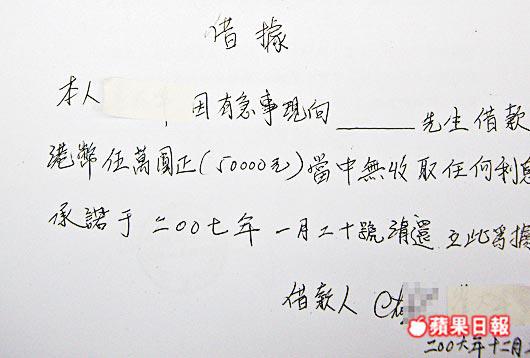 借據
本人 因有急事現向______先生借款
港幣伍萬圓正(50000元)當中無收取任何利息
承諾于二00七年一月二十號清還 立此爲據
借款人
蘋果日報
二00六年十二月